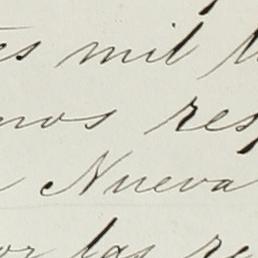 es mil
nos res
Nueva
or las re